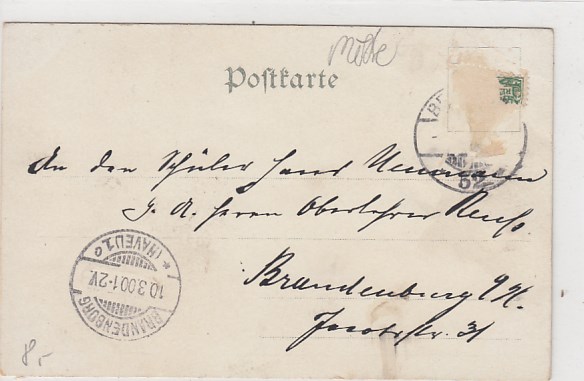 Postkarte
An den Schüler Hans Neumann
p. A. Herrn Oberlehrer
Brandenburg a/H.
Jacobstr. 31
BRANDENBURG
(HAVEL) 1 c
10.3.00.1-2V.
52
8,-